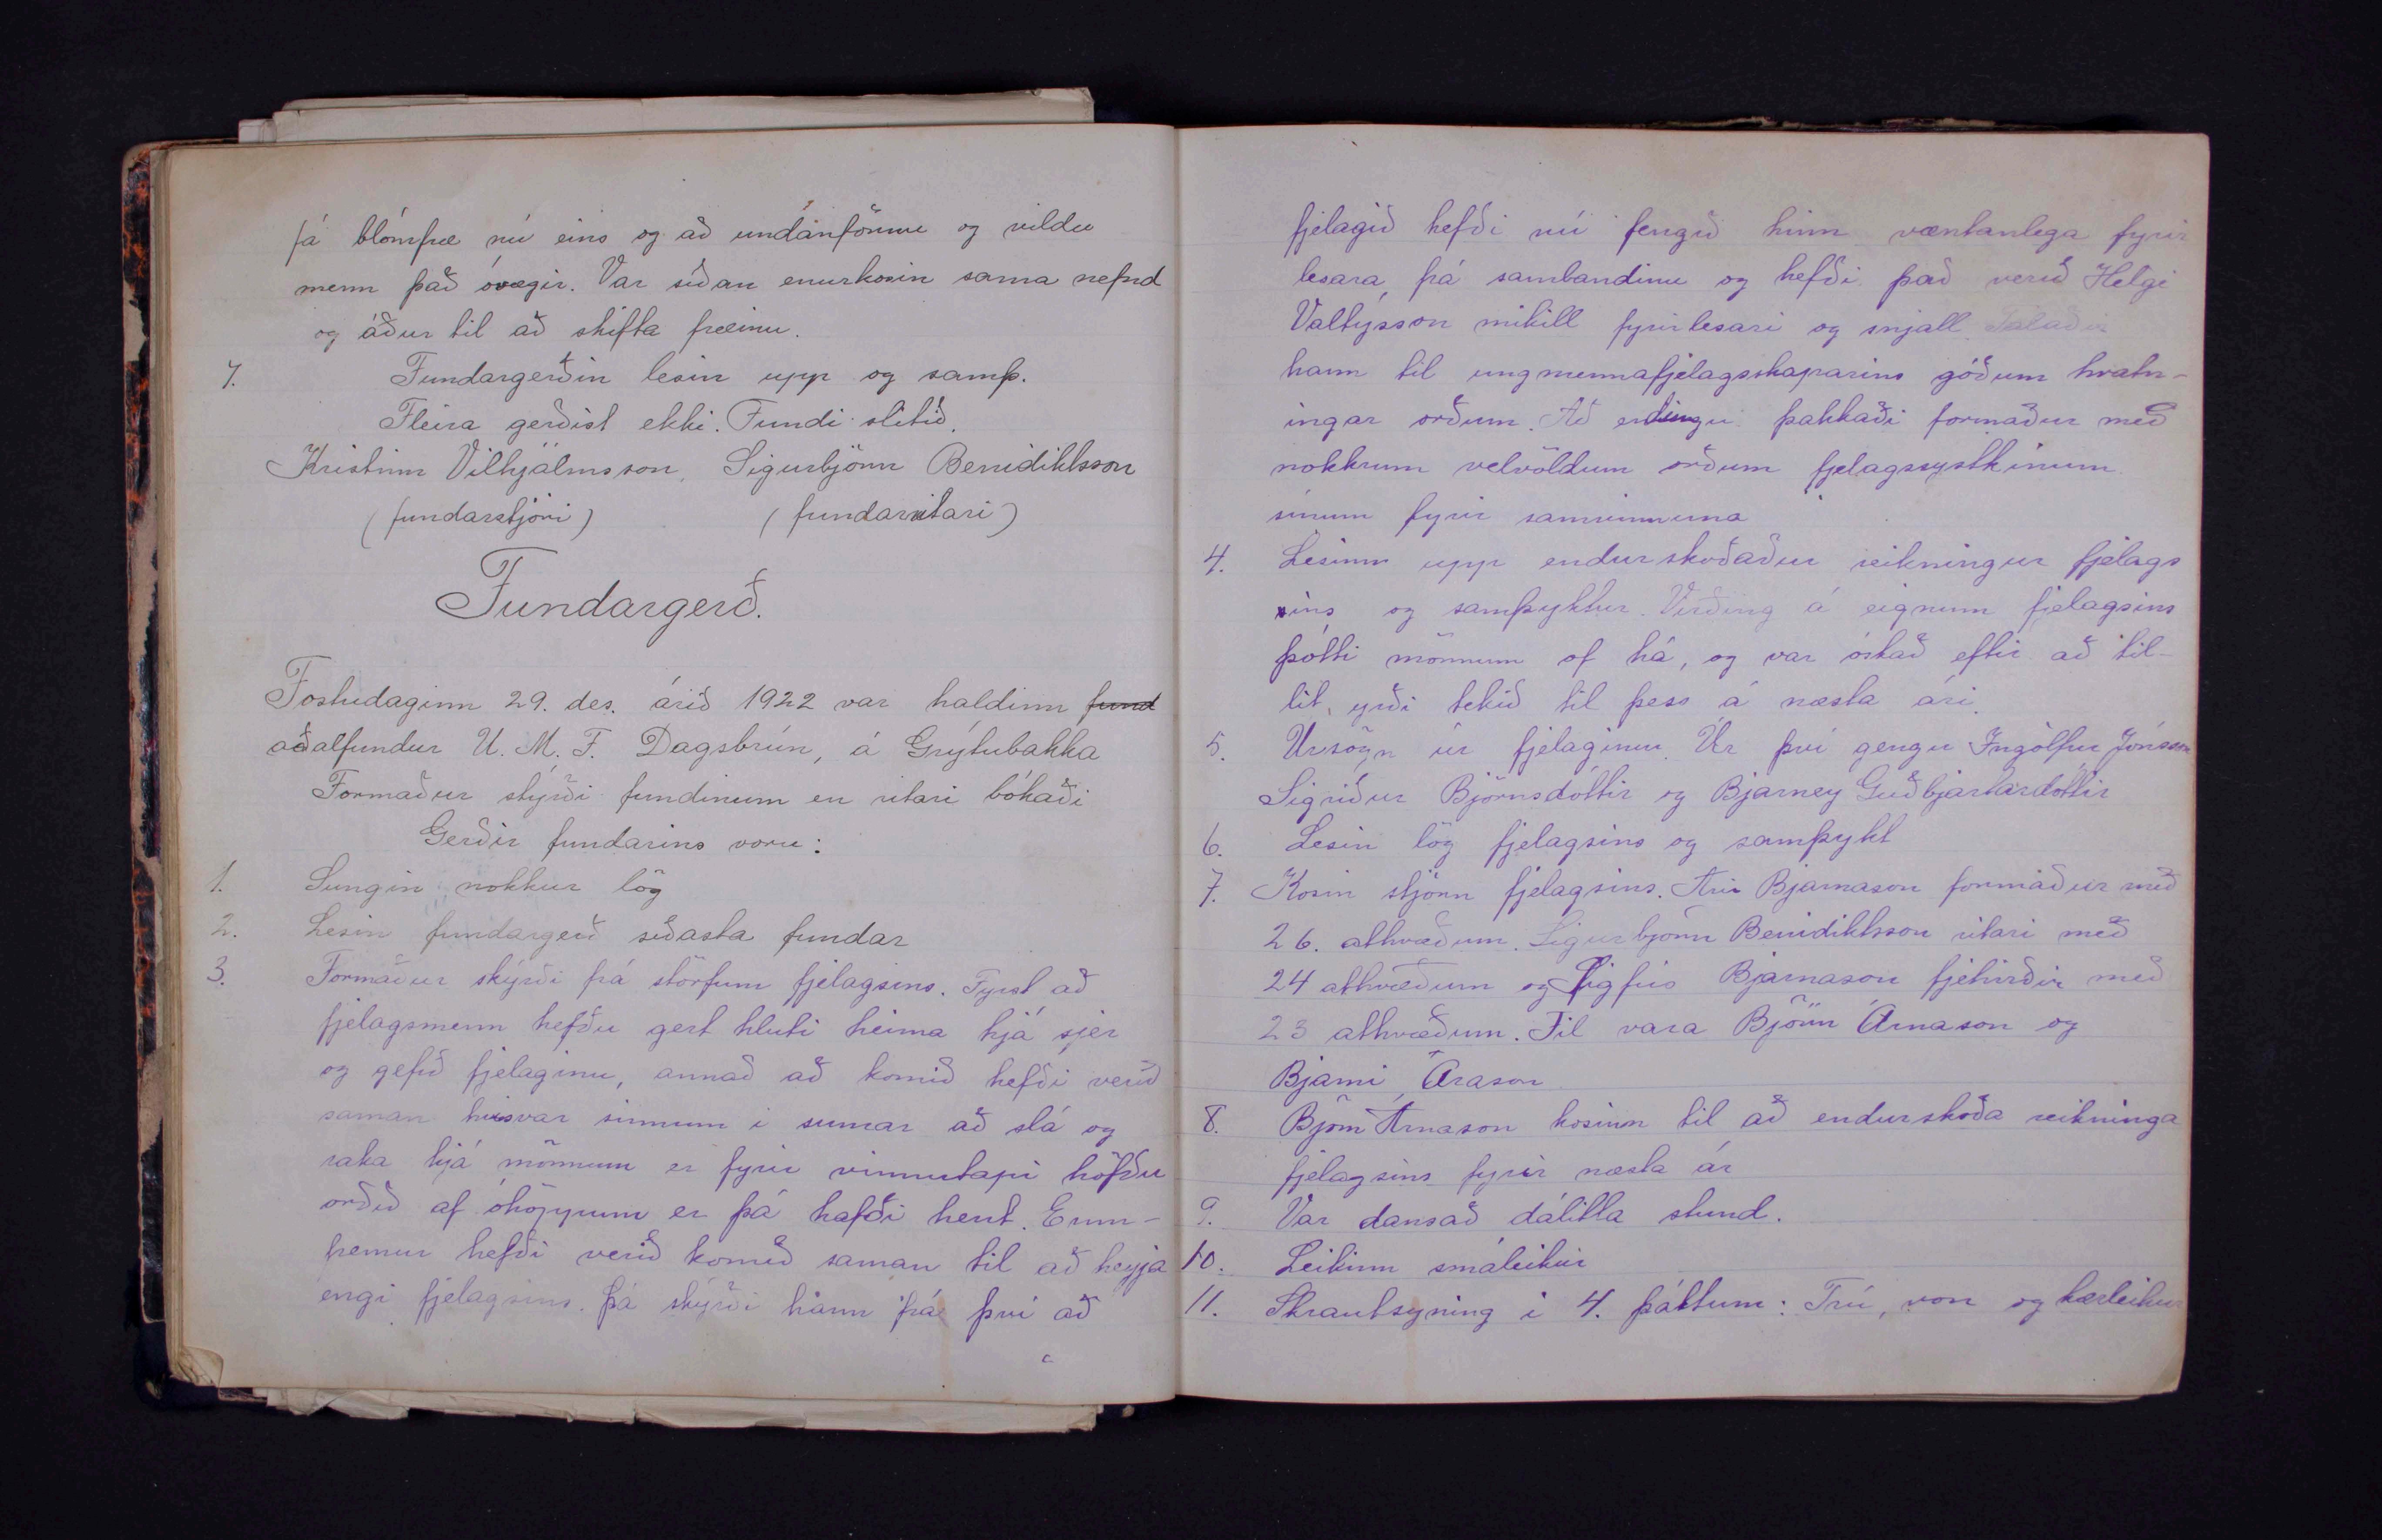 fá blómfræ nú eins og að undanförnu og vildu
menn það óvægir. Var síðan enurkosin sama nefnd
og áður til að skifta fræinu.
7. Fundargerðin lesin upp og samþ.
Fleira gerðist ekki. Fundi slitið.
Kristinn Vilhjálmsson, Sigurbjörn Benidiktsson
(fundarstjóri) (fundarritari)
Fundargerð.
Föstudaginn 29. des. árið 1922 var haldinn fund
aðalfundur U. M. F. Dagsbrún, á Grýtubakka
Formaður stýrði fundinum en ritari bókaði
Gerðir fundarins voru:
1. Sungin nokkur lög
2. Lesin fundargerð síðasta fundar
3. Formaður skýrði frá störfum fjelagsins. Fyrst að
fjelagsmenn hefðu gert hluti heima hjá sjer
og gefið fjelaginu, annað að komið hefði verið
saman sinnum í sumar að slá og
raka hjá mönnum er fyrir vinnutapi höfðu
orðið af óhöppum er þá hafði hent. Enn-
fremur hefði verið komið saman til að heyja
engi fjelagsins. Þá skýrði hann frá því að
fjelagið hefði nú fengið hinn væntanlega fyrir
lesara frá sambandinu og hefði það verið Helgi
Valtýsson mikill fyrirlesari og snjall Talaði
hann til ungmennafjelagsskaparins góðum hvatn-
ingar orðum. Að endingu þakkaði formaður með
nokkrum velvöldum orðum fjelagssystkinum
sínum fyrir samvinnuna
4. Lesinn upp endurskoðaður reikningur fjelags
sins og samþyktur. Virðing á eignum fjelagsins
þótti mönnum of há, og var óskað eftir að til-
lit yrði tekið til þess á næsta ári.
5. Úrsögn úr fjelaginu. Úr því gengu Ingólfur Jónsson
Sigríður Björnsdóttir og Bjarney Guðbjartardóttir
6. Lesin lög fjelagsins og samþykt
7. Kosin stjórn fjelagsins. Ari Bjarnason formaður með
26. athvæðum. Sigurbjörn Benidiktsson ritari með
24 athvæðum og Sigfús Bjarnason fjehirðir með
23 athvæðum. Til vara Björn Árnason og
Bjarni Arason
8. Björn Árnason kosinn til að endurskoða reikninga
fjelagsins fyrir næsta ár
9. Var dansað dálitla stund.
10. Leikinn smáleikur
11. Skrautsyning i 4. þáttum: Trú, von og kærleikur